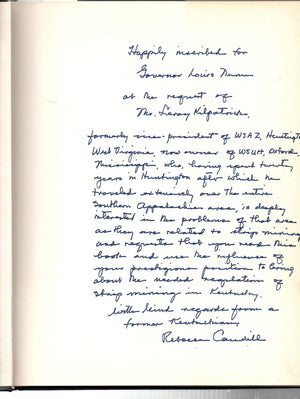 Happily inscribed for
Governor Louis Nunn
at the request of
Mr. Leroy Kilpatrick,
formerly vice-president of WSAZ, Huntington
West Virginia, now owner of WSUH, Oxford,
Mississippi, who, having spent twenty
years in Huntington after which he
traveled extensively over the entire
Southern Appalachian area, is deeply
interested in the problems of that area
as they are related to strip mining
and requests that you read this
book and use the influence of
your prestigious position to bring
about the needed regulation of
strip mining in Kentucky.
With kind regards from a
former Kentuckian,
Rebecca Caudill